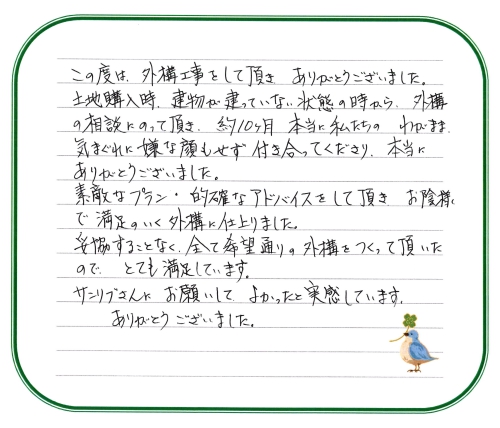 この度は、外構工事をして頂き ありがとうございました。
土地購入時、建物が建っていない状態の時から、外構
の相談にのって頂き、約10ヶ月 本当に私たちの わがまま、
気まぐれに嫌な顔もせず 付き合ってくださり、本当に
ありがとうございました。
素敵なプラン・的確なアドバイスをして頂き お陰様
で満足のいく外構に仕上りました。
妥協することなく、全て希望通りの外構をつくって頂いた
ので、とても満足しています。
サンリブさんに お願いして よかったと実感しています。
ありがとうございました。